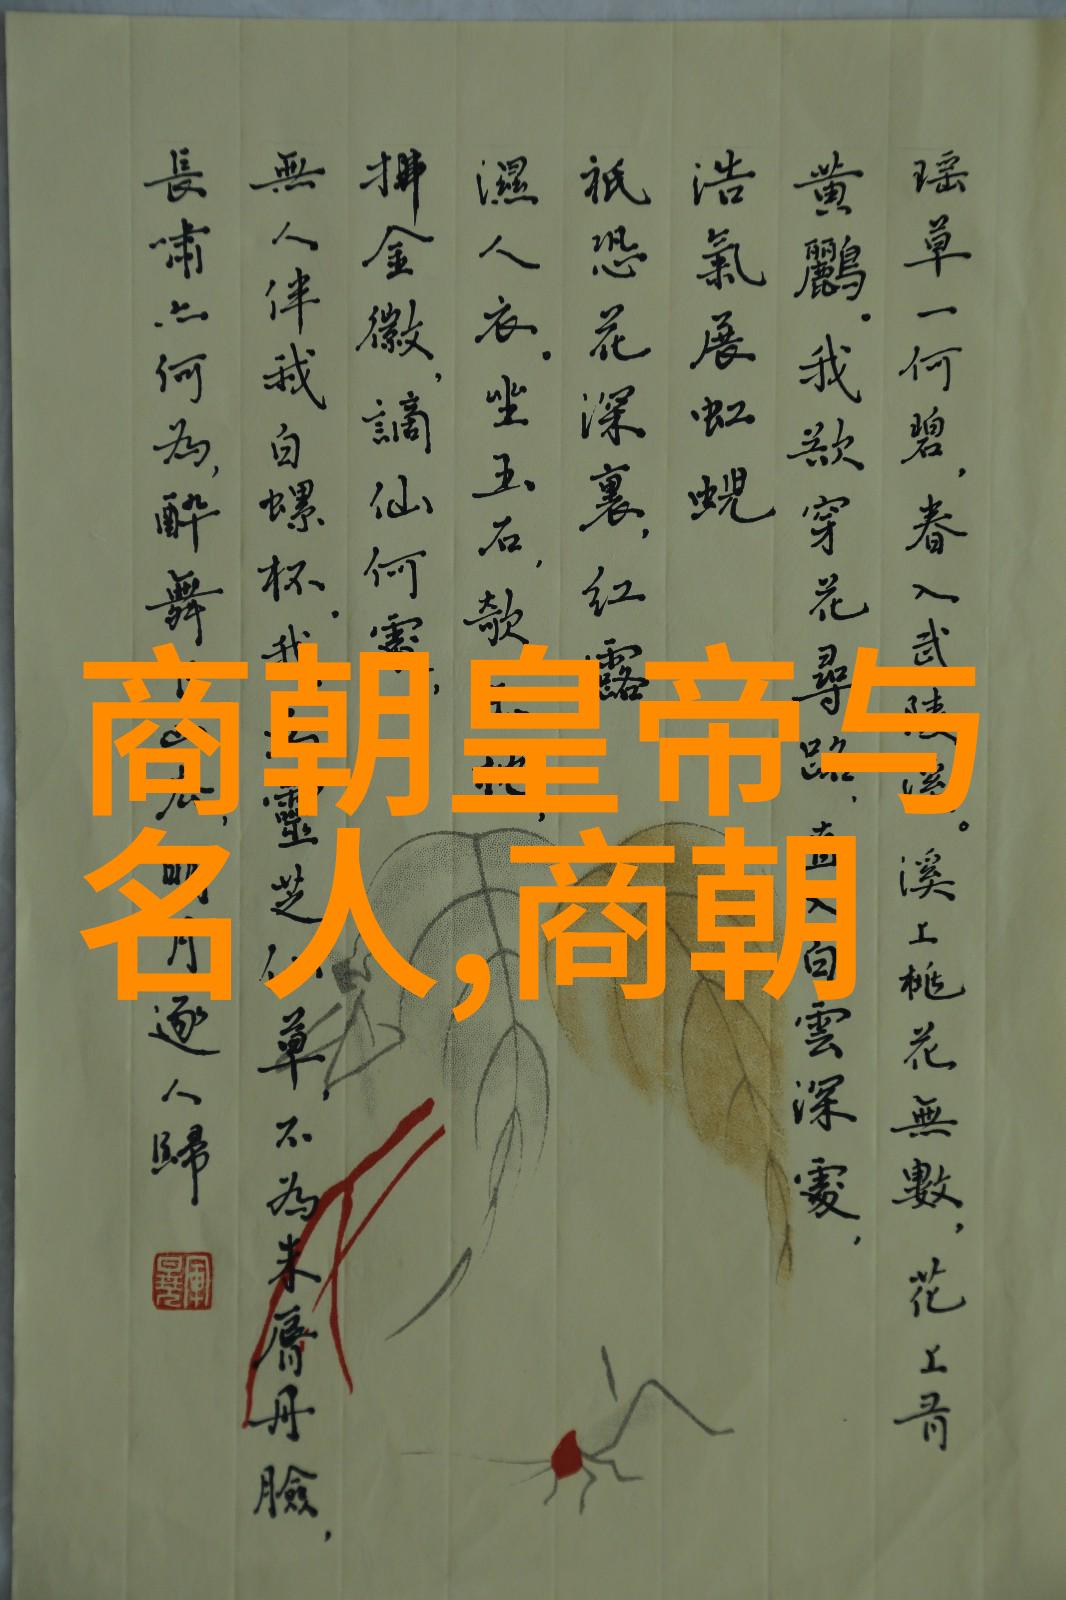 商朝皇帝与
名人,商朝
瑶草一何碧，春入武陵溪。溪上桃花無數，花上有
黄鸝。我欲穿花尋路，直入白雲深處，
浩氣展虹蜺
祇恐花深裏，红露
濕人衣。坐玉石，欹玉枕，
拂金徽，謫仙何處，
無人伴我白螺杯。我為靈芝仙草，不為朱脣丹臉，
長嘯亦何為，醉舞下山去，明月逐人歸